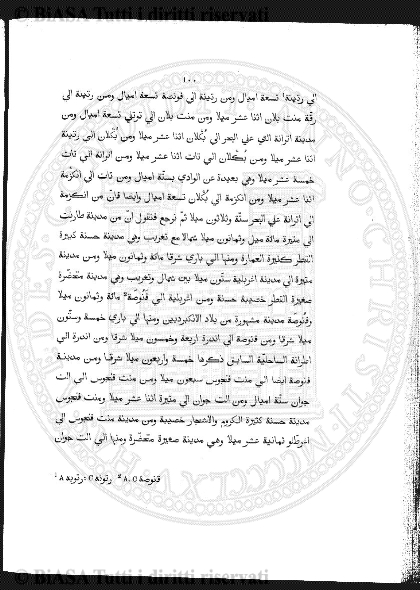 © BiASA Tutti i diritti riservati
١٠٠
الى رتينة¹ تسعة اميال ومن رتينة الى قونصة تسعة اميال ومن رتينة الى
رقّة منت بلان اثنا عشر ميلا ومن منت بلان الى توتقى تسعة اميال ومن
مدينة اترانة التى على البحر الى بُكْلان اثنا عشر ميلا ومن بُكْلان الى رتينة
اثنا عشر ميلا ومن بُكْلان الى تات اثنا عشر ميلا ومن اترانة الى تات
خمسة عشر ميلا وهى بعيدة عن الوادى بستّة اميال ومن تات الى انكرمة
اثنا عشر ميلا ومن انكرمة الى بُكْلان تسعة اميال وايضا فانّ من انكرمة
الى اترانة على البحر ستّة وثلاثون ميلا ثمّ نرجع فنقول انّ من مدينة طارنت
الى متيرة مائة ميل وثمانون ميلا شمالا مع تغريب وهى مدينة حسنة كبيرة
القطر كثيرة العمارة ومنها الى بارى شرقا مائة وثمانون ميلا ومن مدينة
متيرة الى مدينة اغربلية ستّون ميلا بين شمال وتغريب وهى مدينة متحضّرة
صغيرة القطر خصيبة حسنة ومن اغربلية الى قَنُوصة² مائة وثمانون ميلا
وقنُوصة مدينة مشهورة من بلاد الانكبردبين ومنها الى بارى خمسة وستّون
ميلا شرقا ومن قنوصة الى اندرة اربعة وخمسون ميلا شرقا ومن اندرة الى
اطرانة الساحليّة السابق ذكرها خمسة واربعون ميلا شرقا ومن مدينة
قنوصة ايضا الى منت فنجوس سبعون ميلا ومن منت فنجوس الى الت
جوان ستّة اميال ومن الت جوان الى متيرة اثنا عشر ميلا ومنت فنجوس
مدينة حسنة كثيرة الكروم والاشجار خصيبة ومن مدينة منت فنجوس الى
اغرطلو ثمانية عشر ميلا وهى مدينة صغيرة متحضّرة ومنها الى الت جوان
© BiASA Tutti i diritti riservati